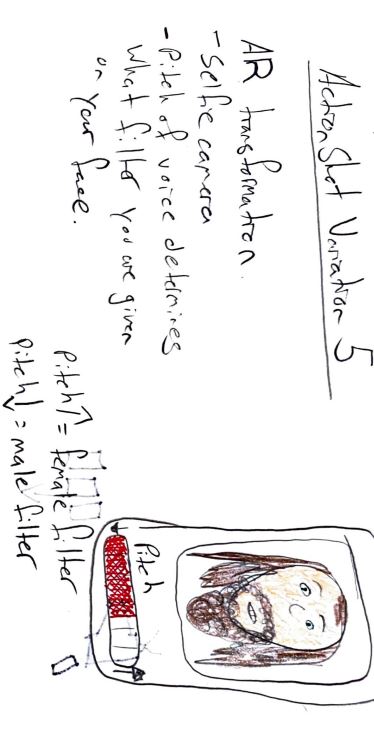 Action Shot Variation 5
AR transformation
- Selfie camera
- Pitch of voice determines
what filter you are given
on your face.
Pitch
Pitch↑ = female filter
Pitch↓ = male filter